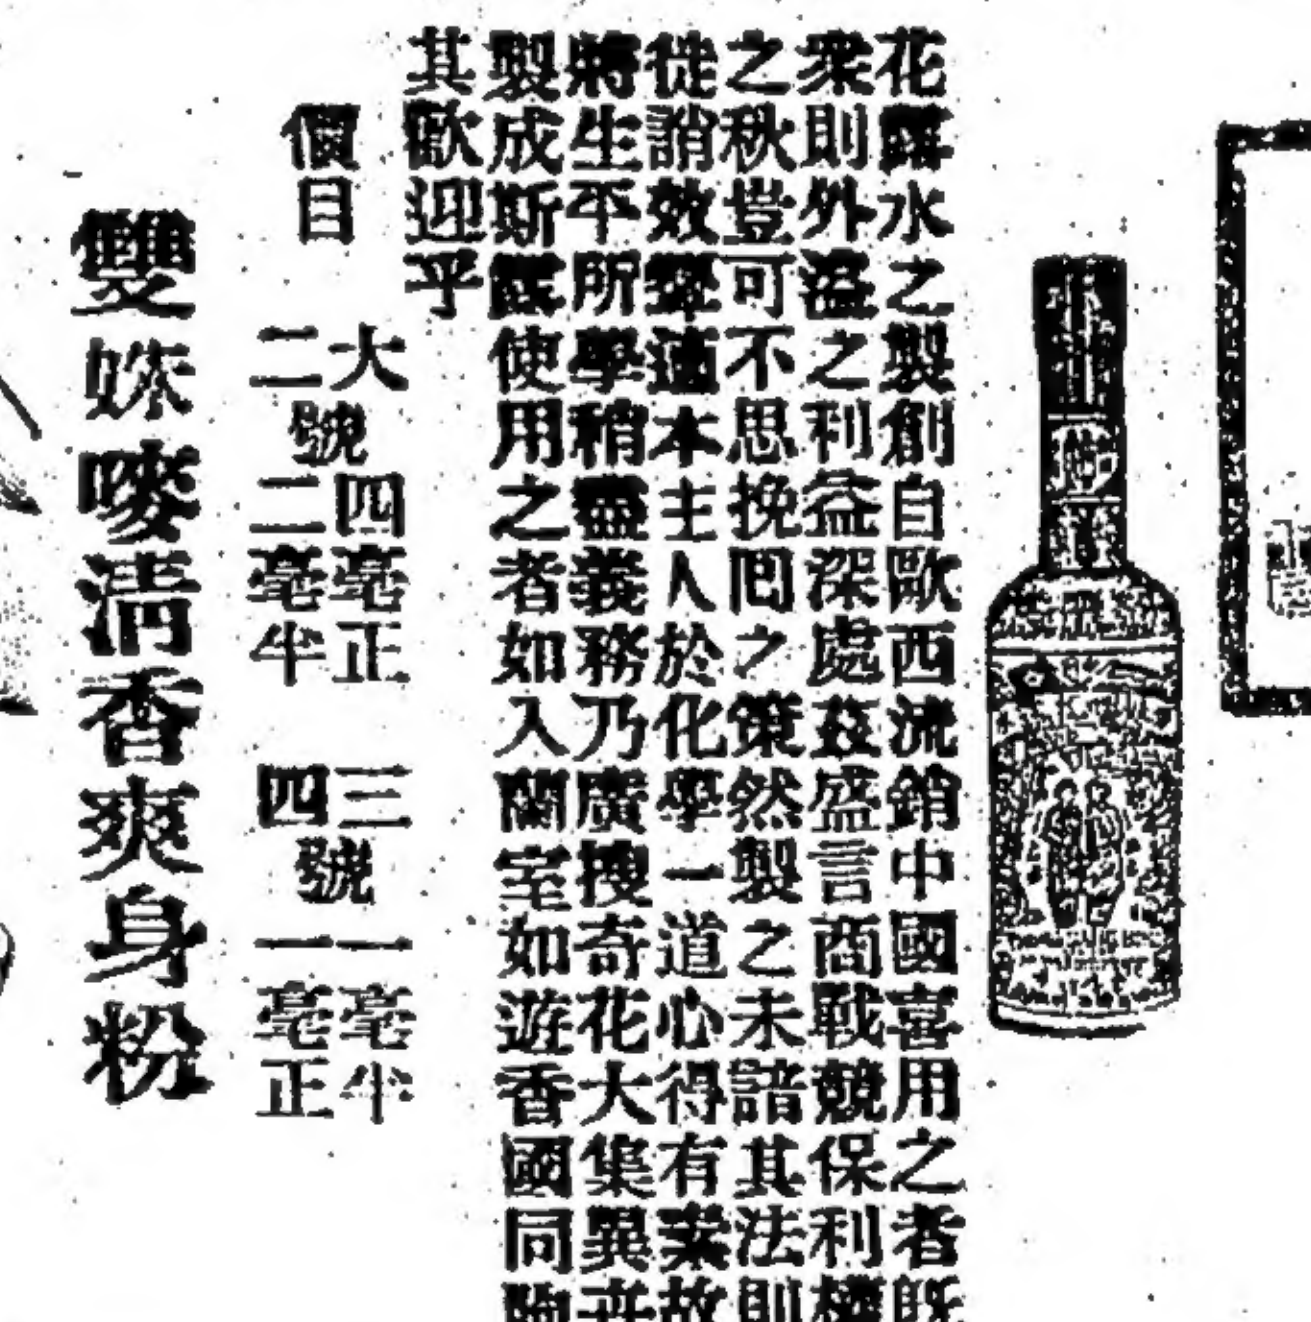 花露水之製創自歐西流銷中國喜用之者既
衆則外溢之利益深處茲盛言商戰競保利權
之秋豈可不思挽回之策然製之未諳其法則
徒誚效顰適本主人於化學一道心得有素故
將生平所學稍盡義務乃廣搜奇花大集異卉
製成斯露使用之者如入蘭室如遊香國同
其歡迎乎
價目
大號四毫正 三號一毫半
二號二毫半 四號一毫正
雙妹嘜清香爽身粉